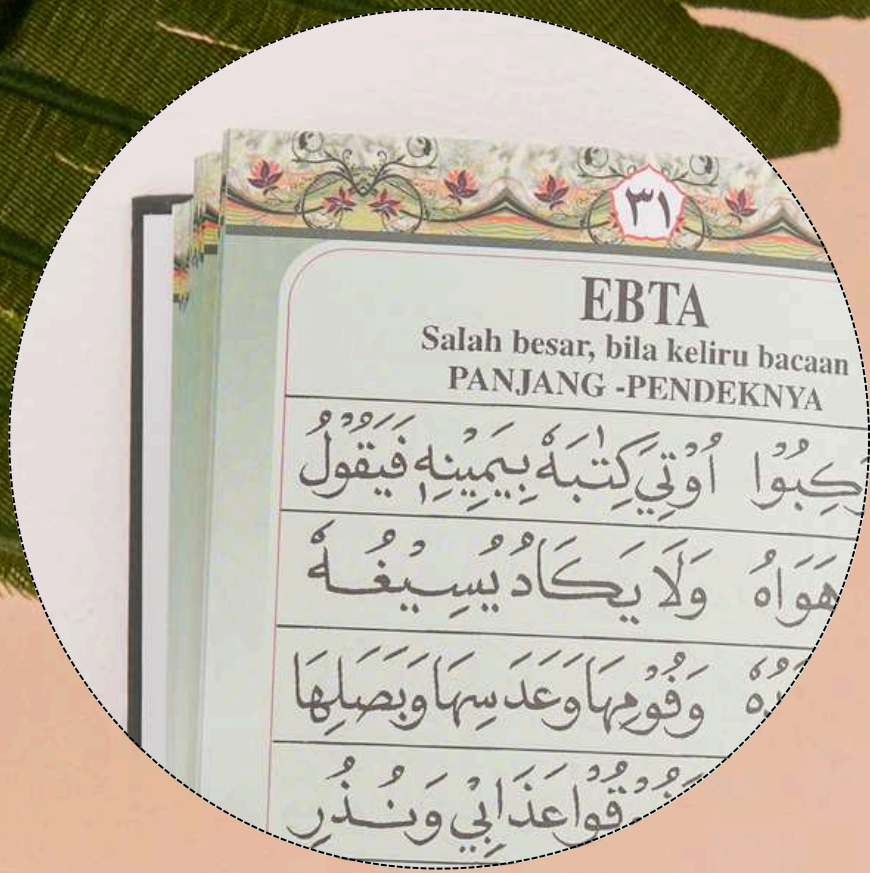 ٣١
EBTA
Salah besar, bila keliru bacaan
PANJANG -PENDEKNYA
رَكِبُوْا اُوْتِيَ كِتٰبَهٗ بِيَمِيْنِهٖ فَيَقُوْلُ
هَوَاهُ وَلَا يَكَادُ يُسِيْغُهٗ
وَفُوْمِهَا وَعَدَسِهَا وَبَصَلِهَا
عَذَابِيْ وَنُذُرِ